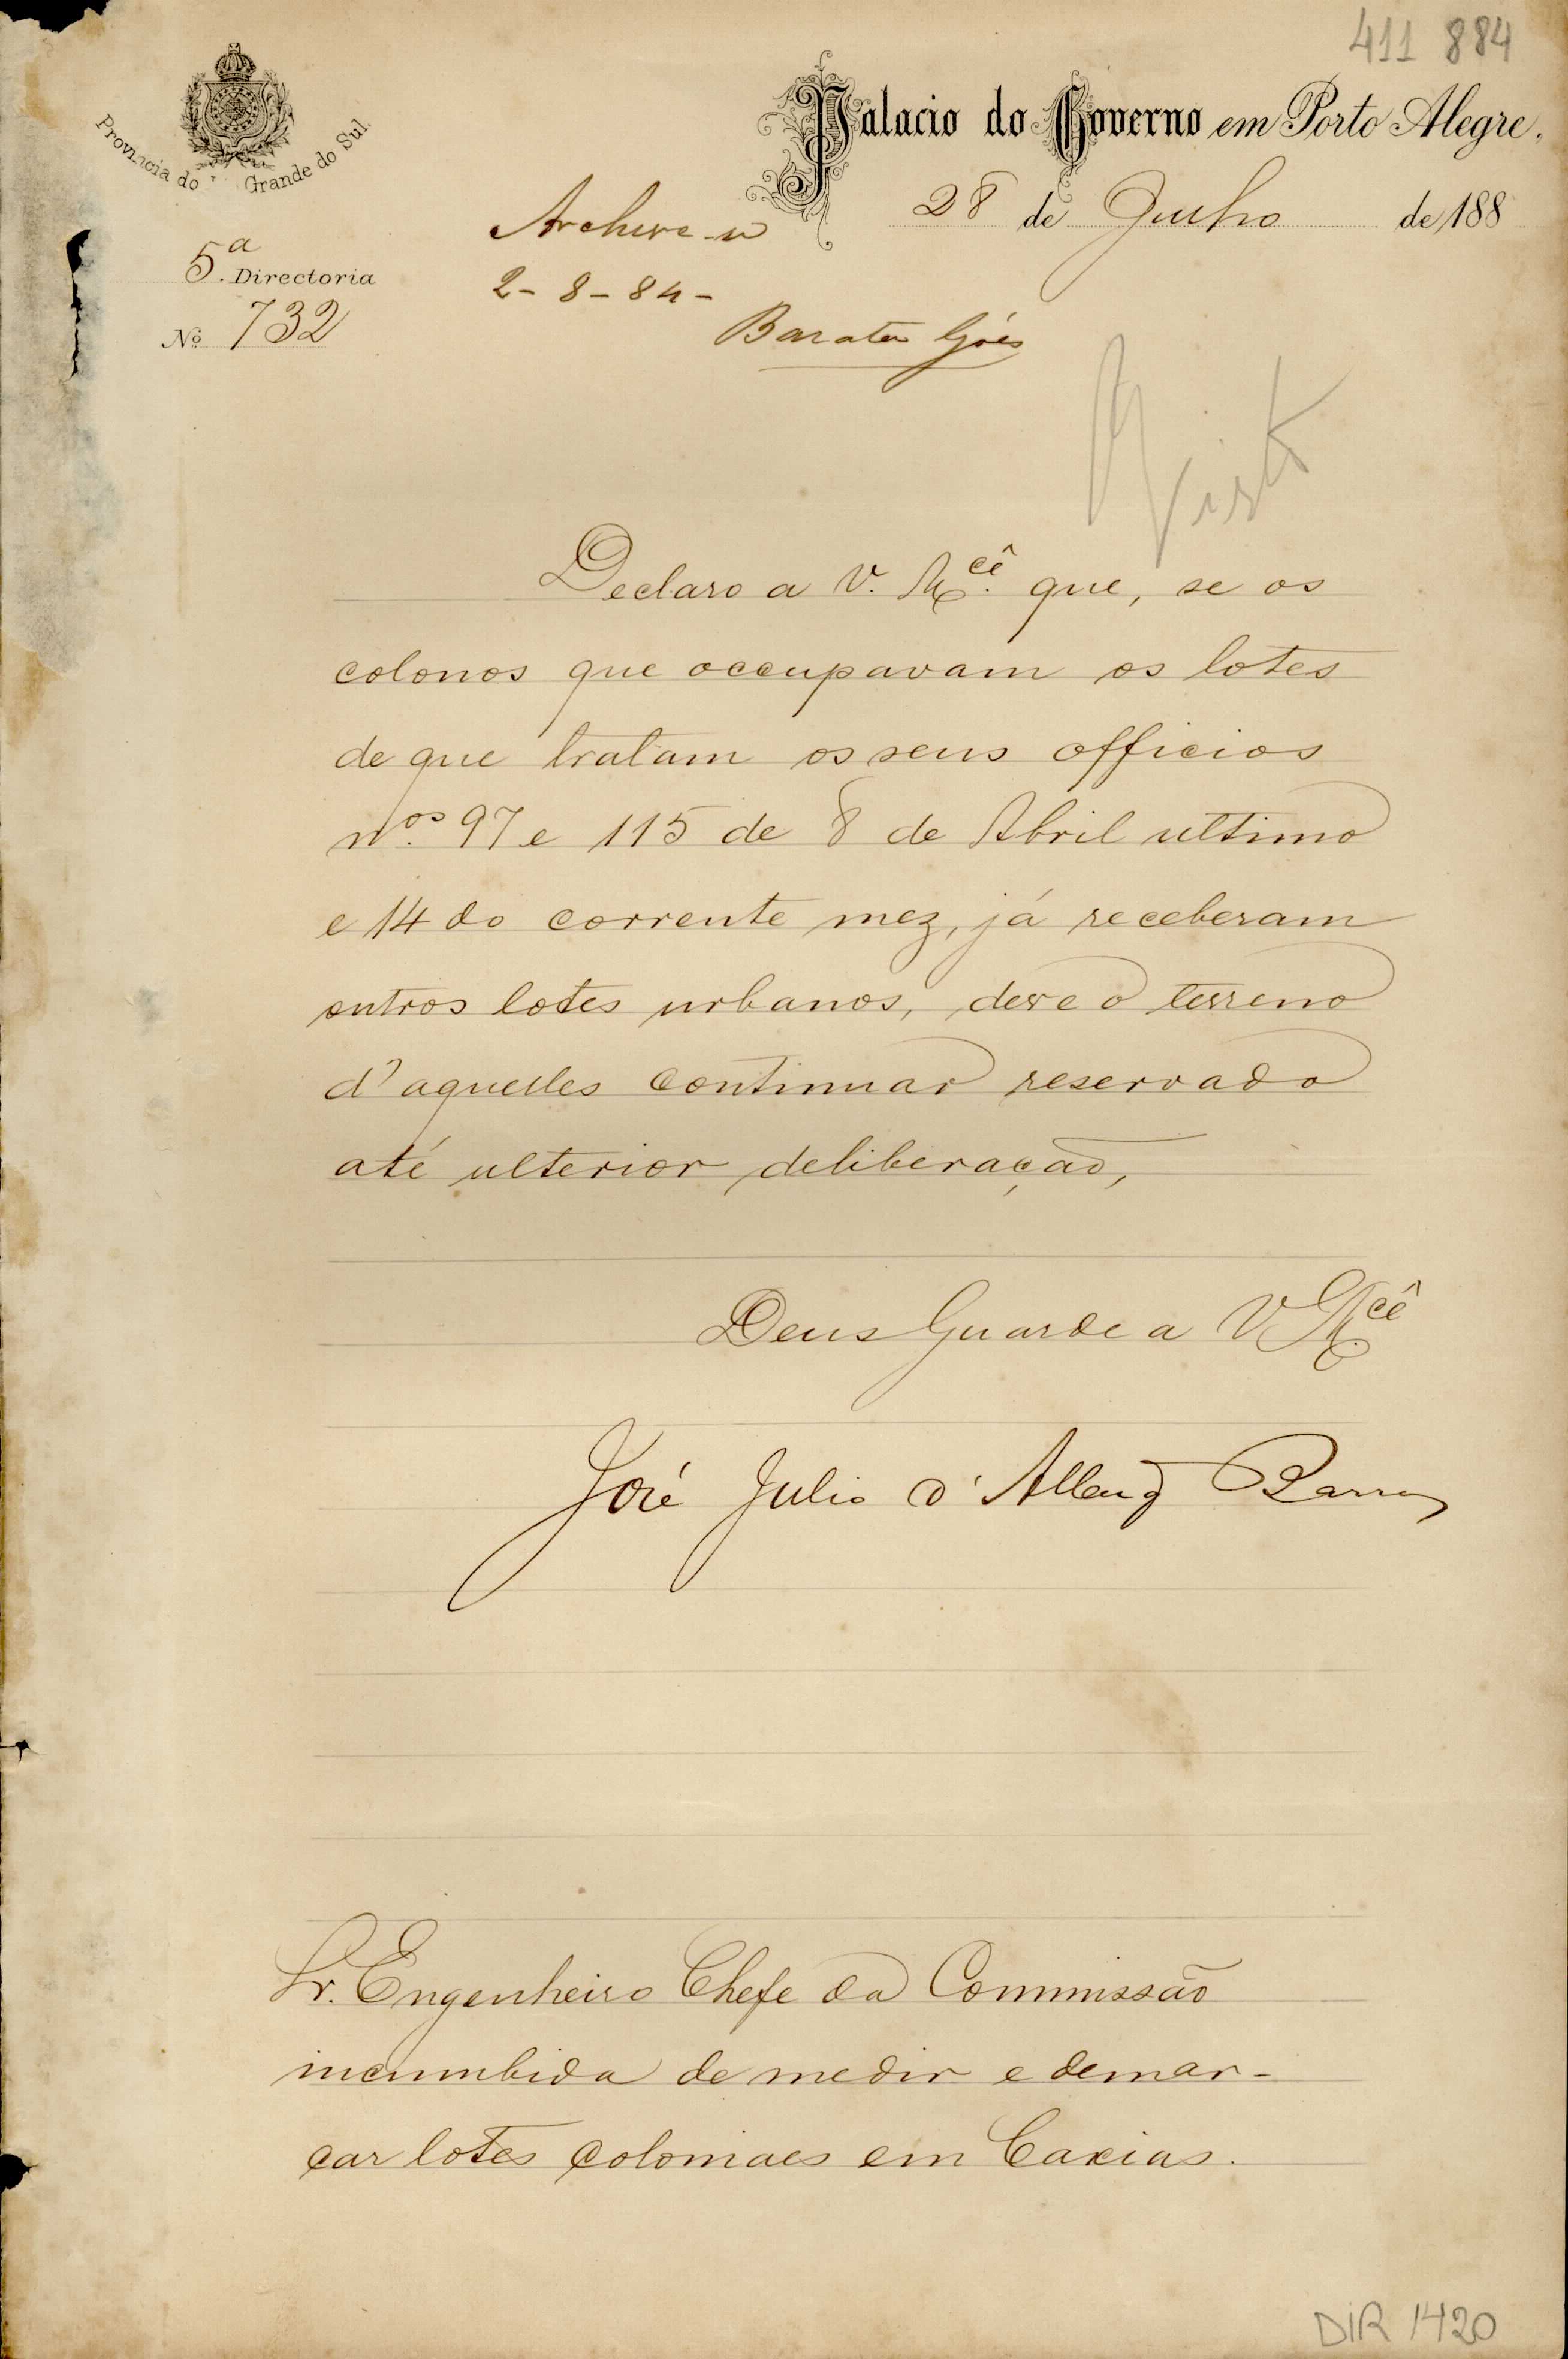 411 884
Provincia do Grande do Sul.
Palacio do Governo em Porto Alegre,
28 de Junho de 188
Archive-se
5.ª Directoria
2-8-84-
Nº 732
Barata Góes
Visto
Declaro a V. Mcê. que, se os
colonos que occupavam os lotes
de que tratam os seus officios
nos. 97 e 115 de 8 de Abril ultimo
e 14 do corrente mez, já receberam
outros lotes urbanos, deve o terreno
d'aquelles continuar reservado
até ulterior deliberação,
Deus Guarde a V Mcê
José Julio d'Albuq Barros
Sr. Engenheiro Chefe da Commissão
incumbida de medir e demar-
car lotes coloniaes em Caxias.
DIR 1420